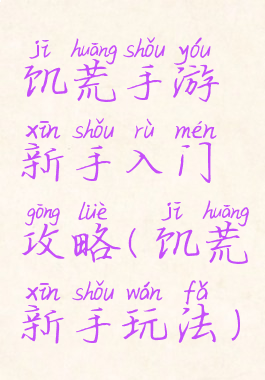 jī huāng shǒu yóu
饥荒手游
xīn shǒu rù mén
新手入门
gōng lüè jī huāng
攻略(饥荒
xīn shǒu wán fǎ
新手玩法)